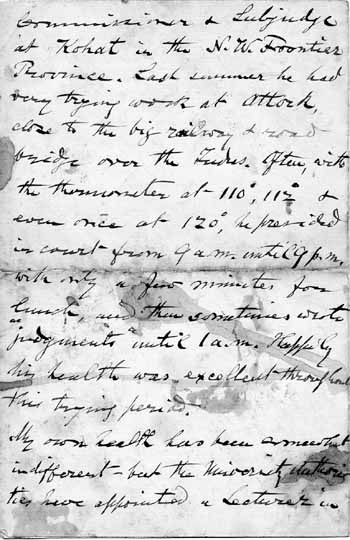 Commissioner & Subjudge
at Kohat in the N.W. Frontier
Province. Last summer he had
very trying work at Attock,
close to the big railway & road
bridge over the Indus. Often, with
the thermometer at 110°, 112° &
even once at 120°, he presided
in court from 9 a.m. until 9 p.m.
with only a few minutes for
lunch, and then sometimes wrote
"judgments" until 1 a.m. Happily
his health was excellent throughout
this trying period.
My own health has been somewhat
indifferent - but the University Authori
ties have appointed a Lecturer in